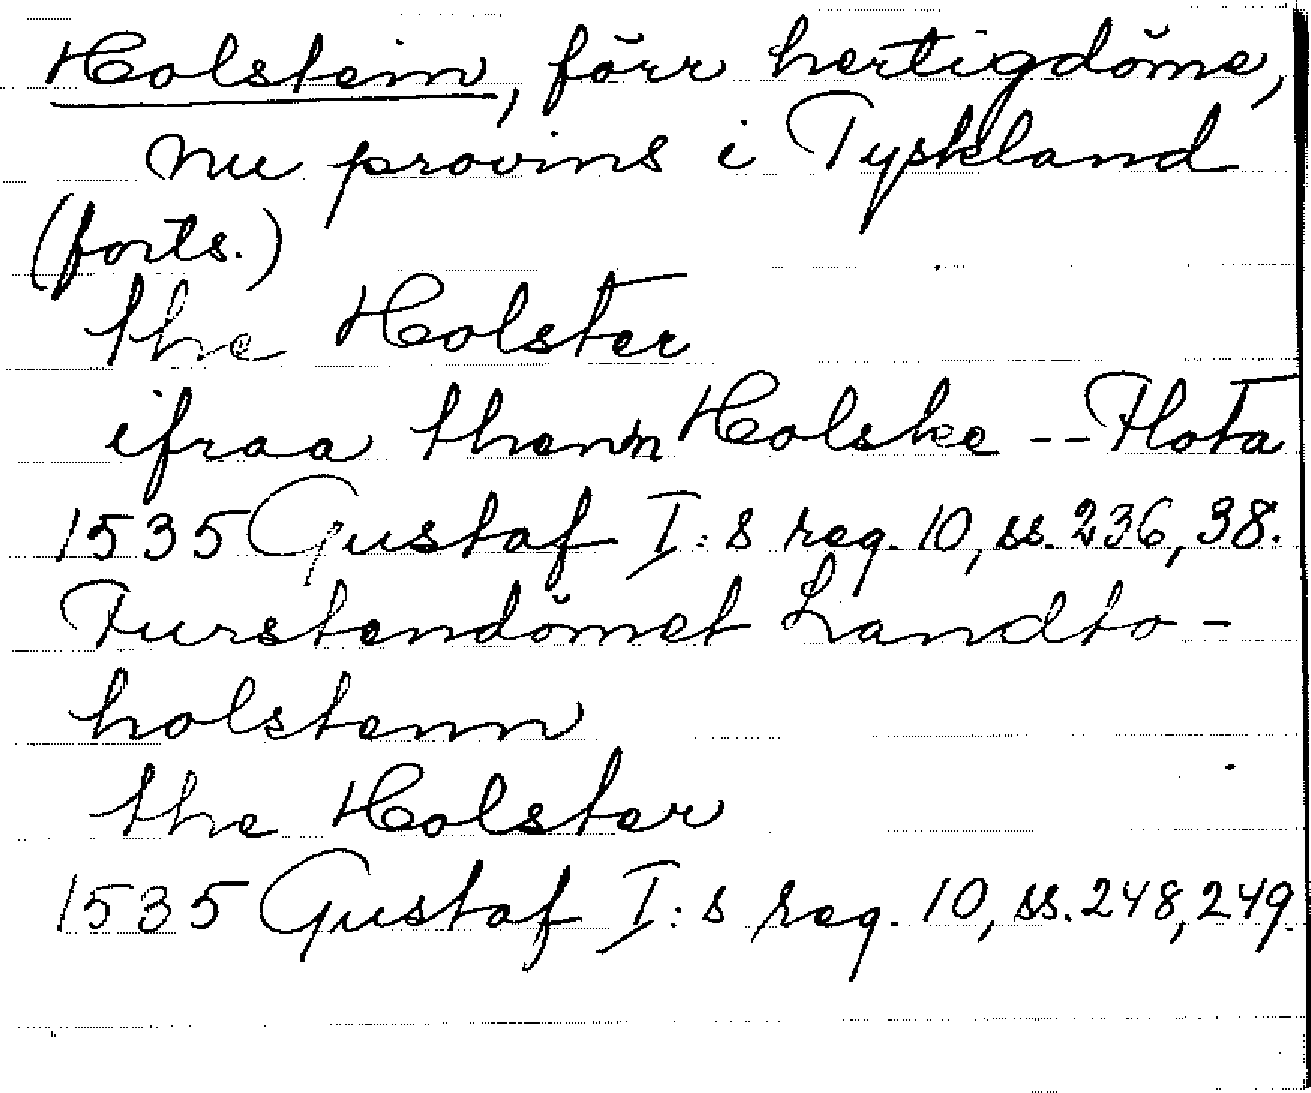 Holstein, förr hertigdöme,
nu provins i Tyskland
(forts.)
the Holster
ifraa thenn Holske -- Flota
1535 Gustaf I:s reg. 10, ss. 236, 38.
Furstendömet Landto-
holstenn
the Holster
1535 Gustaf I:s reg. 10, ss. 248, 249.